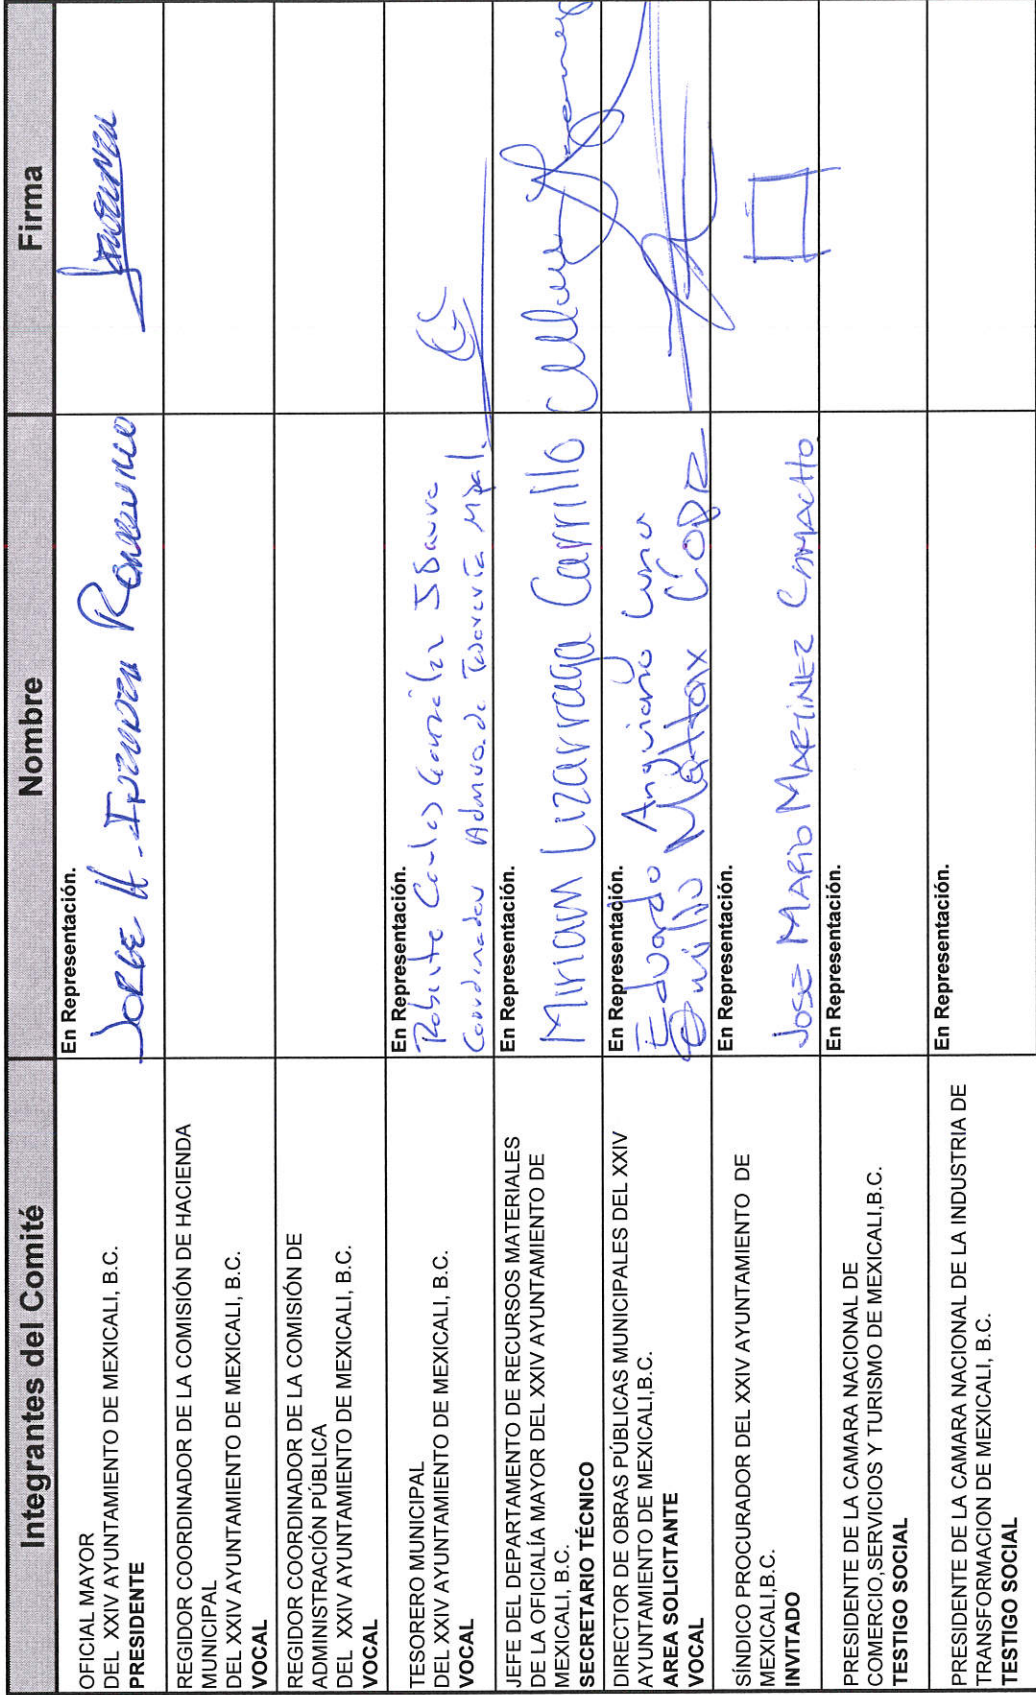 Integrantes del Comité
Nombre
Firma
OFICIAL MAYOR
DEL XXIV AYUNTAMIENTO DE MEXICALI, B.C.
PRESIDENTE
En Representación.
JORGE H.
REGIDOR COORDINADOR DE LA COMISIÓN DE HACIENDA
MUNICIPAL
DEL XXIV AYUNTAMIENTO DE MEXICALI, B.C.
VOCAL
REGIDOR COORDINADOR DE LA COMISIÓN DE
ADMINISTRACIÓN PÚBLICA
DEL XXIV AYUNTAMIENTO DE MEXICALI, B.C.
VOCAL
TESORERO MUNICIPAL
DEL XXIV AYUNTAMIENTO DE MEXICALI, B.C.
VOCAL
En Representación.
Carlos González
Coordinador Admvo. de Tesorería Mpal.
JEFE DEL DEPARTAMENTO DE RECURSOS MATERIALES
DE LA OFICIALÍA MAYOR DEL XXIV AYUNTAMIENTO DE
MEXICALI, B.C.
SECRETARIO TÉCNICO
En Representación.
Miriam Lizarraga Carrillo
DIRECTOR DE OBRAS PÚBLICAS MUNICIPALES DEL XXIV
AYUNTAMIENTO DE MEXICALI,B.C.
AREA SOLICITANTE
VOCAL
En Representación.
Eduardo Anguiano Luna
Emilio Mattox
SÍNDICO PROCURADOR DEL XXIV AYUNTAMIENTO DE
MEXICALI,B.C.
INVITADO
En Representación.
JOSE MARIO MARTINEZ CAMACHO
PRESIDENTE DE LA CAMARA NACIONAL DE
COMERCIO,SERVICIOS Y TURISMO DE MEXICALI,B.C.
TESTIGO SOCIAL
En Representación.
PRESIDENTE DE LA CAMARA NACIONAL DE LA INDUSTRIA DE
TRANSFORMACION DE MEXICALI, B.C.
TESTIGO SOCIAL
En Representación.